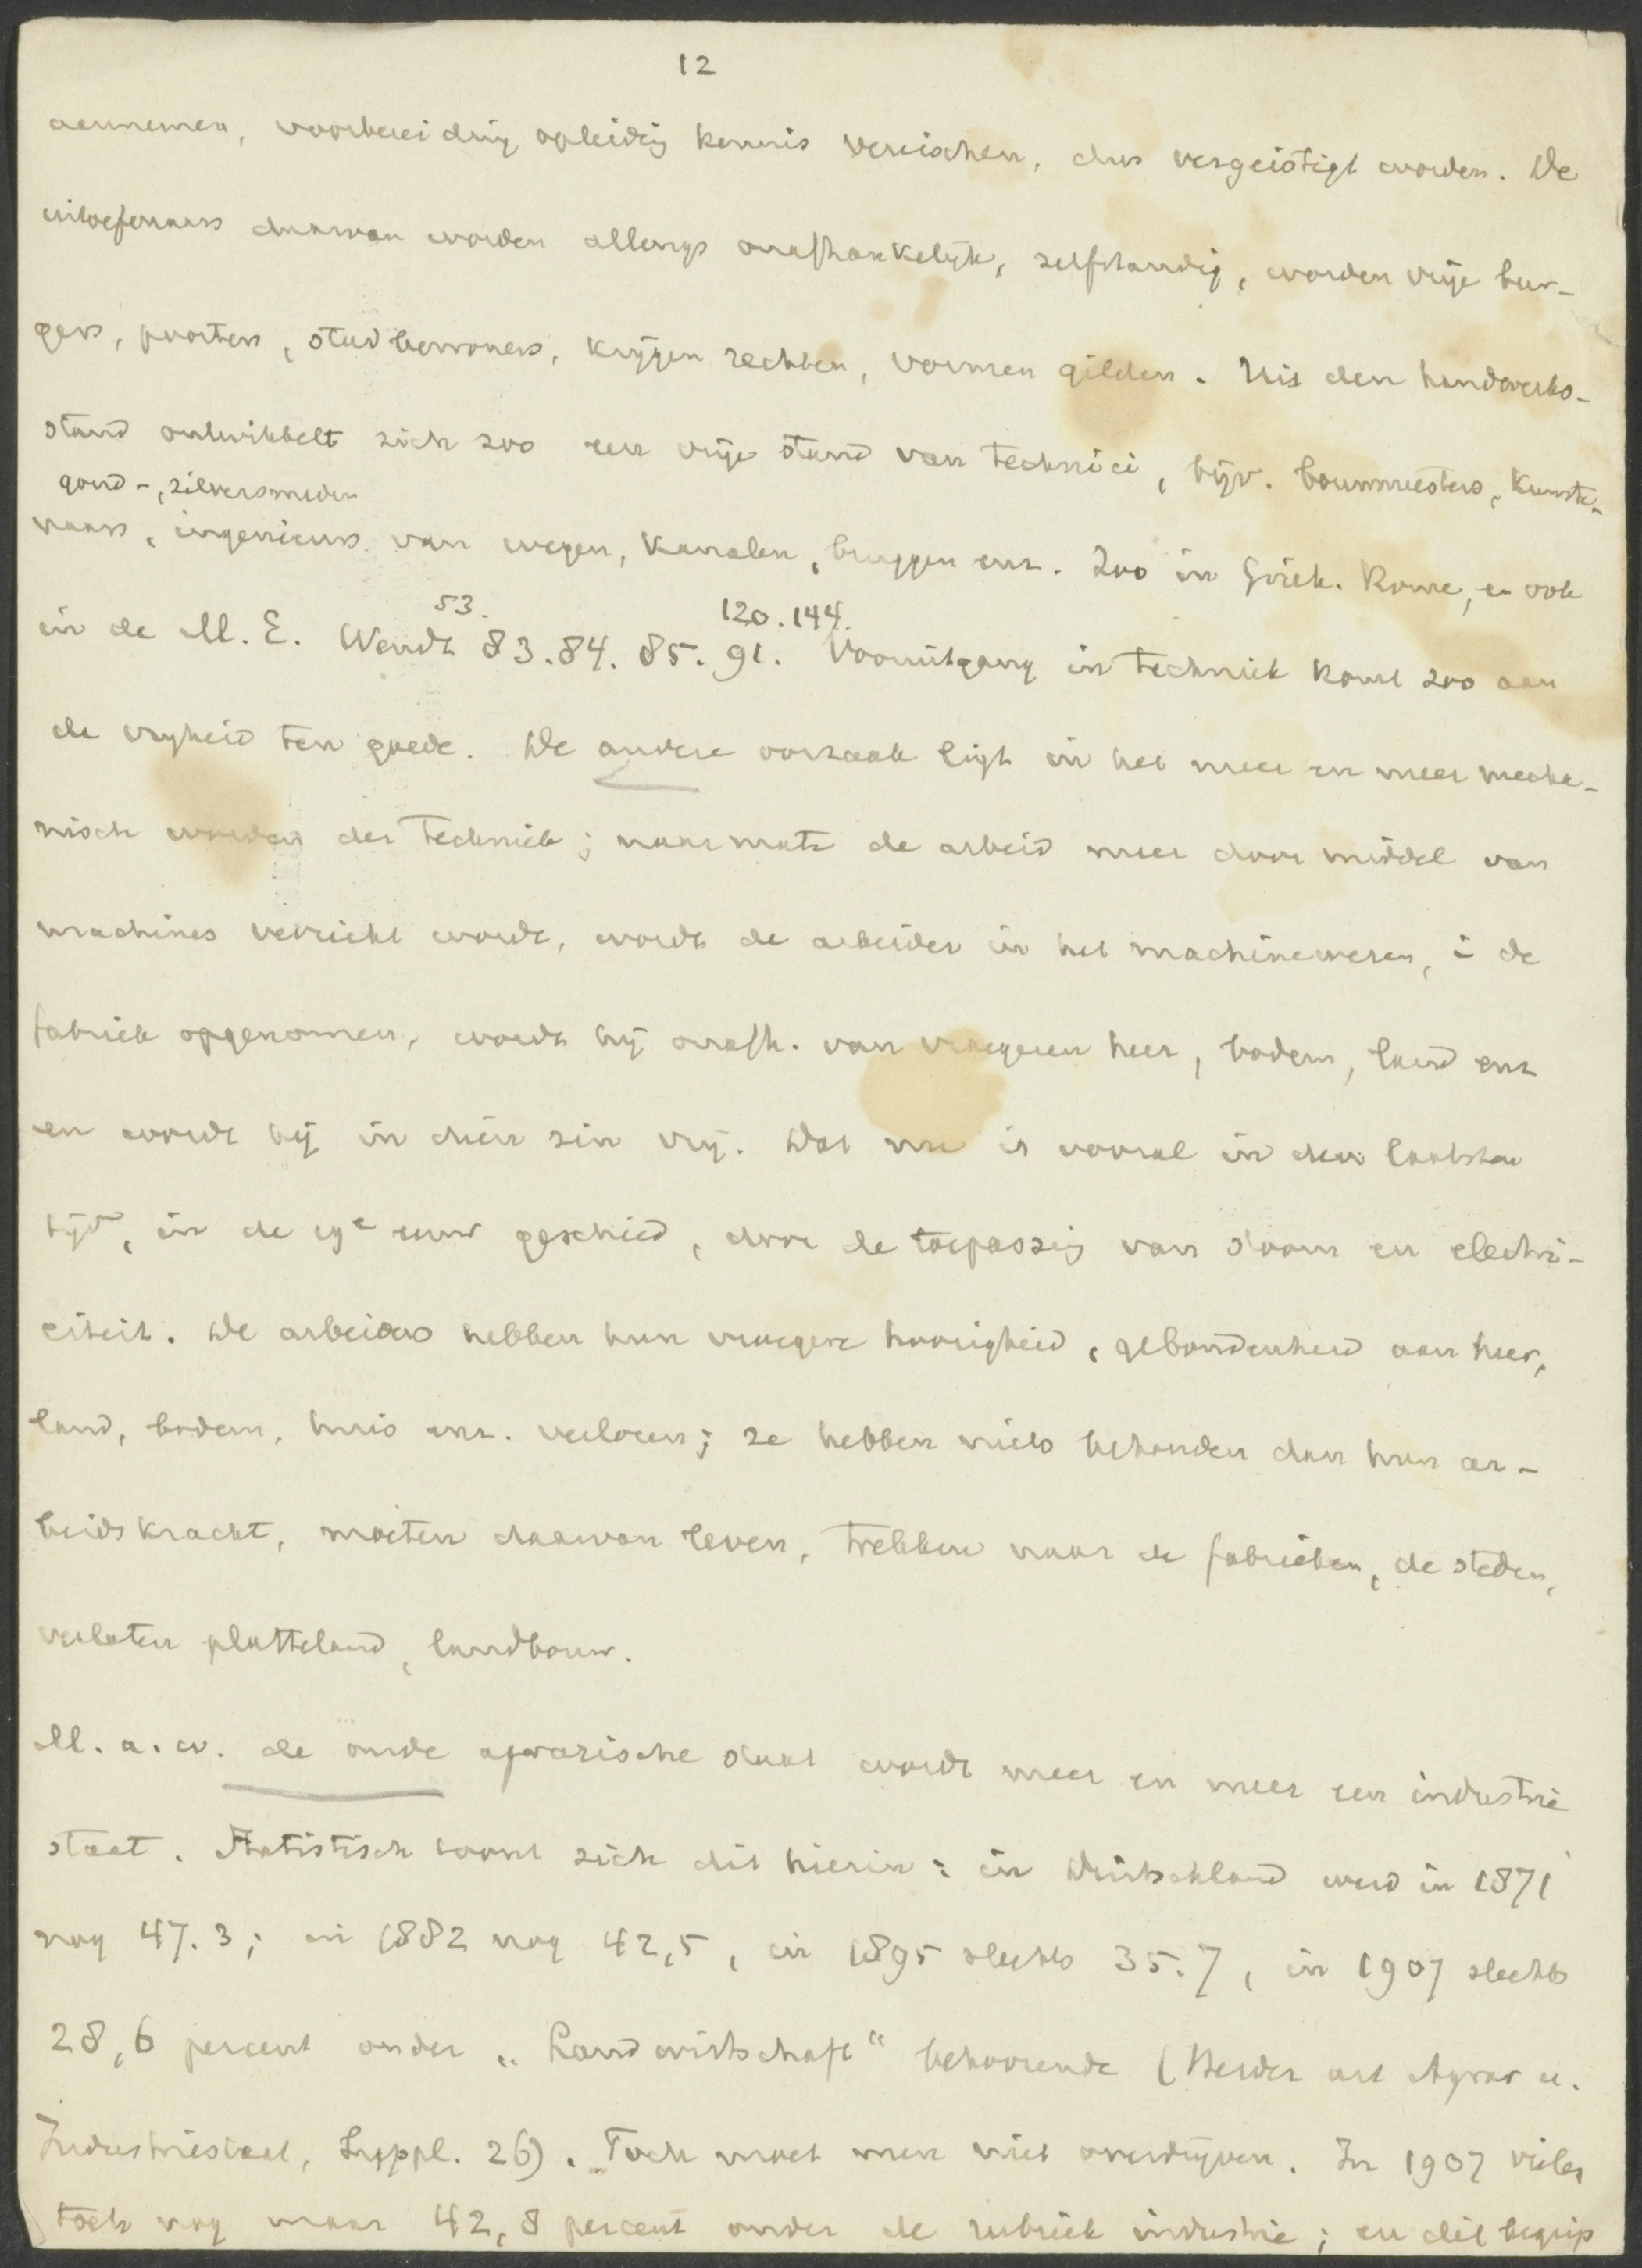 12
aannemen, voorbereiding opleidig kennis vereischen, dus vergeistigt worden. De
uitoefenaars daarvan worden allengs onafhankelijk, zelfstandig, worden vrije bur-
gers, poorters, stadbewoners, krijgen rechten, vormen gilden. Uit den handwerks-
stand ontwikkelt zich zoo een vrije stand van technici, bijv. bouwmeesters, kunste-
goud-, zilversmeden
naars, ingenieurs van wegen, kanalen, bruggen enz. Zoo in Griek. Rome, en ook
53. 120.144.
in de M. E. Wendt 83.84. 85. 91. Vooruitgang in techniek komt zoo aan
de vrijheid ten goede. De andere oorzaak ligt in het meer en meer mecha-
nisch worden der techniek; naarmate de arbeid meer door middel van
machines verricht wordt, wordt de arbeider in het machinewezen, in de
fabriek opgenomen, wordt hij onafh. van vroegeren heer, bodem, land enz
en wordt hij in dien zin vrij. Dat nu is vooral in den laatsten
tijd, in de 19e eeuw geschied, door de toepassig van stoom en electri-
citeit. De arbeiders hebben hun vroegere hoorigheid, gebondenheid aan heer,
land, bodem, huis enz. verloren; ze hebben niets behouden dan hun ar-
beidskracht, moeten daarvan leven, trekken naar de fabrieken, de steden,
verlaten platteland, landbouw.
M. a. w. de oude agrarische staat wordt meer en meer een industrie
staat. Statistisch toont zich dit hierin: in Duitschland werd in 1871
nog 47.3; in 1882 nog 42,5, in 1895 slechts 35.7, in 1907 slechts
28,6 percent onder „Landwirtschaft“ behoorende (Herder art Agrar u.
Industriestaat, Suppl. 26). Toch moet men niet overdrijven. In 1907 vielen
toch nog maar 42,8 percent onder de rubriek industrie; en dit begrip